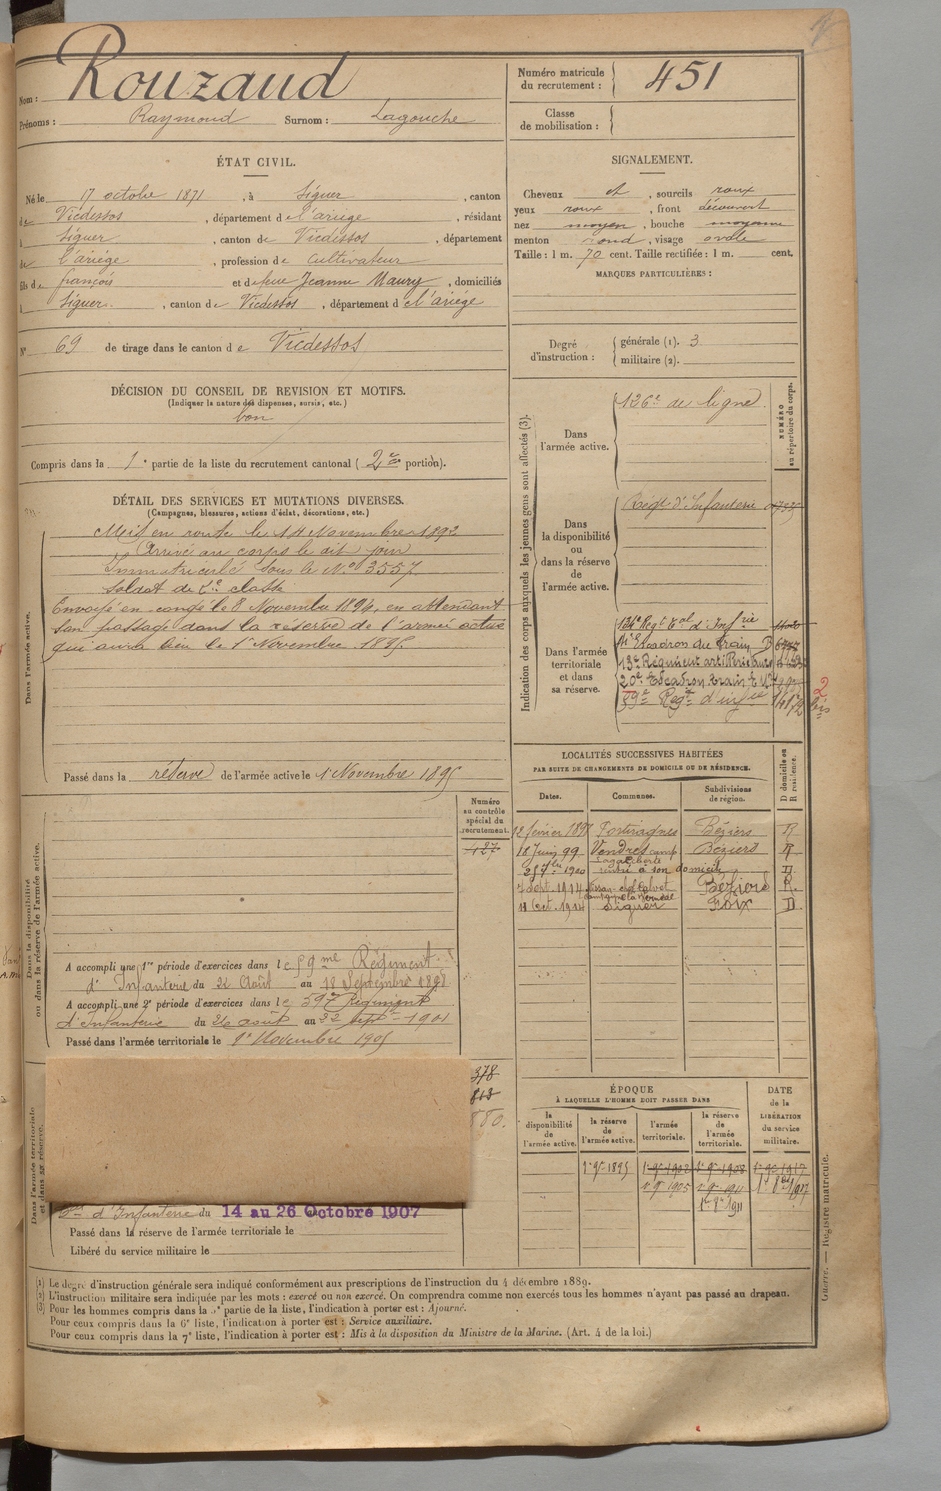 Nom : Rouzaud
Prénoms : Raymond Surnom : Lagouche
Numéro matricule du recrutement : 451
Classe de mobilisation :
ÉTAT CIVIL.
Né le 17 octobre 1871, à Siguer, canton
de Vicdessos, département de l'ariège, résidant
à Siguer, canton de Vicdessos, département
de l'ariège, profession de cultivateur
fils de françois et de feue Jeanne Maury, domiciliés
à Siguer, canton de Vicdessos, département de l'ariège
N° 69 de tirage dans le canton de Vicdessos
SIGNALEMENT.
Cheveux et, sourcils roux
yeux roux, front découvert
nez moyen, bouche moyenne
menton rond, visage ovale
Taille : 1 m. 70 cent. Taille rectifiée : 1 m. cent.
MARQUES PARTICULIÈRES :
Degré d'instruction : générale (1). 3
militaire (2).
DÉCISION DU CONSEIL DE REVISION ET MOTIFS.
(Indiquer la nature des dispenses, sursis, etc.)
bon
Compris dans la 1e partie de la liste du recrutement cantonal (2e portion).
DÉTAIL DES SERVICES ET MUTATIONS DIVERSES.
(Campagnes, blessures, actions d'éclat, décorations, etc.)
Dans l'armée active.
Mis en route le 14 Novembre 1892
Arrivé au corps le dit jour
Immatriculé sous le N° 3557
soldat de 2e classe
Envoyé en congé le 8 Novembre 1894, en attendant
son passage dans la réserve de l'armée active
qui aura lieu le 1er Novembre 1895.
Passé dans la réserve de l'armée active le 1 Novembre 1895
Indication des corps auxquels les jeunes gens sont affectés (3).
NUMÉRO au répertoire du corps.
Dans l'armée active.
126e de ligne
Dans la disponibilité ou dans la réserve de l'armée active.
Régt d'Infanterie
Dans l'armée territoriale et dans sa réserve.
134e Régt Tal d'Infrie
Escadron du train
13e Régiment
20e Escadron train
59e Regt d'infie
2 bis
LOCALITÉS SUCCESSIVES HABITÉES
PAR SUITE DE CHANGEMENTS DE DOMICILE OU DE RÉSIDENCE.
Dates. Communes. Subdivisions de région. D domicile ou R résidence.
12 février 1898 Portiragnes Béziers R
18 Juin 99 Vendres Béziers R
1900 rentré à son domicile D
7 Sept. 1914 Béziers R.
11 Oct. 1914 Siguer Foix D
Dans la disponibilité ou dans la réserve de l'armée active.
Numéro au contrôle spécial du recrutement.
127
A accompli une 1re période d'exercices dans le 59me Régiment
d'Infanterie du 22 Août au 18 Septembre 1898
A accompli une 2e période d'exercices dans le 59e Régiment
d'Infanterie du 26 août au 22 septre 1901
Passé dans l'armée territoriale le 1er Novembre 1905
Dans l'armée territoriale et dans sa réserve.
378
813
880.
d'Infanterie du 14 au 26 Octobre 1907
Passé dans la réserve de l'armée territoriale le
Libéré du service militaire le
ÉPOQUE
À LAQUELLE L'HOMME DOIT PASSER DANS
la disponibilité de l'armée active. la réserve de l'armée active. l'armée territoriale. la réserve de l'armée territoriale.
DATE de la LIBÉRATION du service militaire.
1er 9e 1895 1er 9e 1902 1er 9e 1908 1er 9e 1917
1905 1911 1917
1911
(1) Le degré d'instruction générale sera indiqué conformément aux prescriptions de l'instruction du 4 décembre 1889.
(2) L'instruction militaire sera indiquée par les mots : exercé ou non exercé. On comprendra comme non exercés tous les hommes n'ayant pas passé au drapeau.
(3) Pour les hommes compris dans la partie de la liste, l'indication à porter est : Ajourné.
Pour ceux compris dans la 6e liste, l'indication à porter est : Service auxiliaire.
Pour ceux compris dans la 7e liste, l'indication à porter est : Mis à la disposition du Ministre de la Marine. (Art. 4 de la loi.)
Guerre. — Registre matricule.